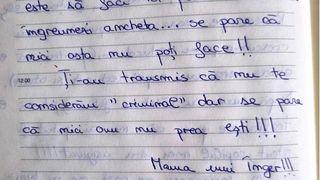 este să faci
îngreunezi ancheta... se pare că
nici asta nu poți face!!
12:00
Ți-au transmis că nu te
considerăm "criminal" dar se pare
că nici om nu prea ești!!!
Mama unui înger!!!